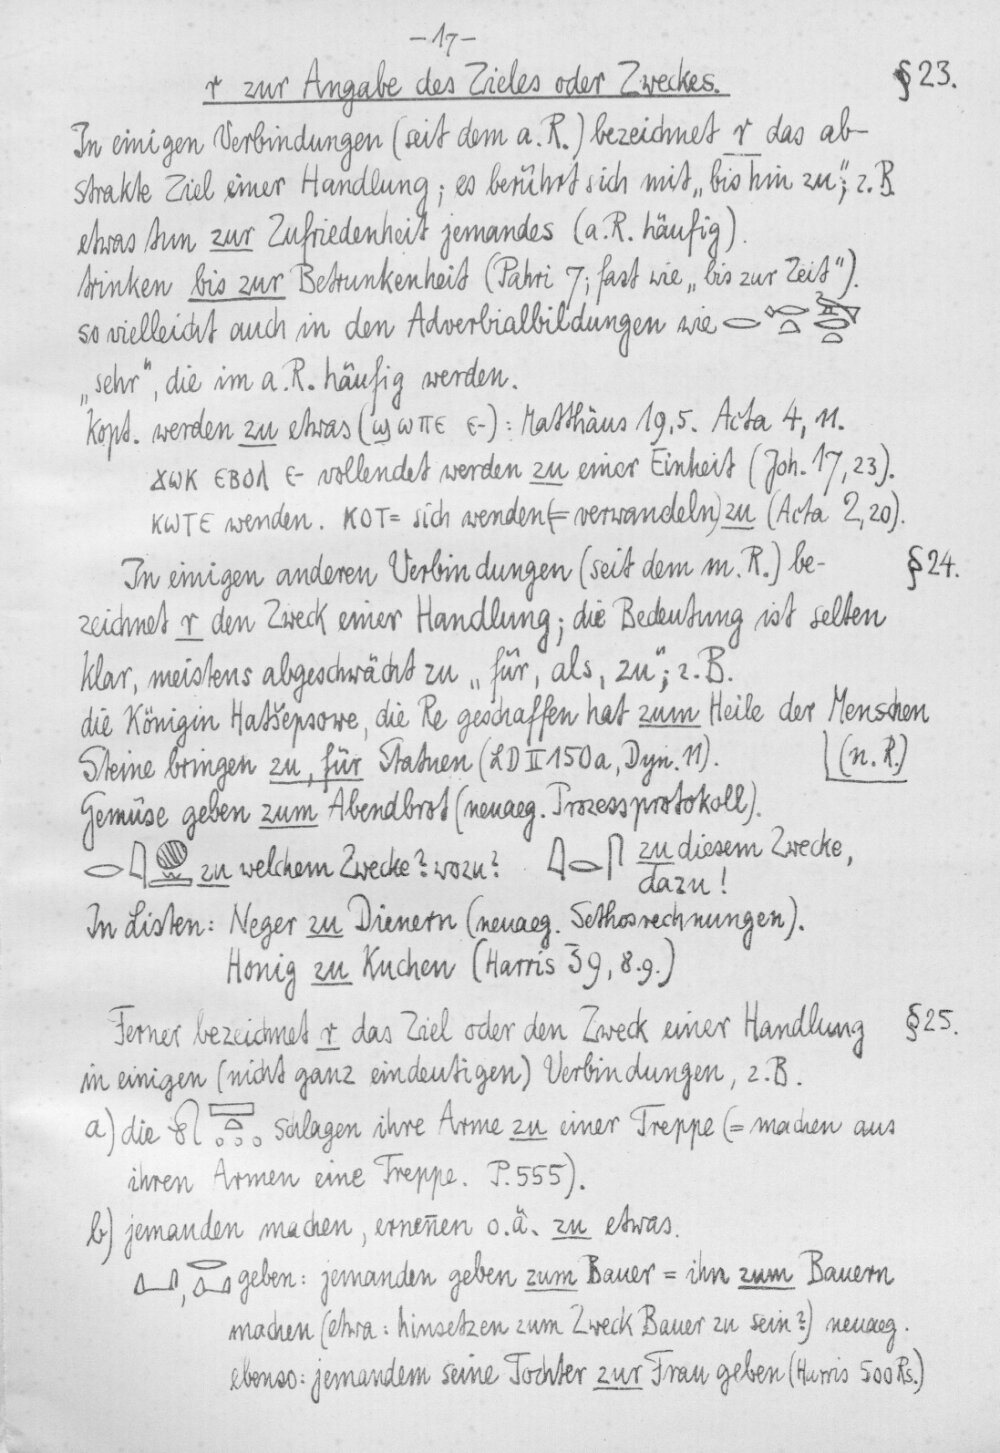 – 17 –
r zur Angabe des Zieles oder Zweckes. § 23.
In einigen Verbindungen (seit dem a. R.) bezeichnet r das ab-
strakte Ziel einer Handlung; es berührt sich mit „bis hin zu“; z. B.
etwas tun zur Zufriedenheit jemandes (a. R. häufig).
trinken bis zur Betrunkenheit (Pahri 7; fast wie „bis zur Zeit“).
so vielleicht auch in den Adverbialbildungen wie
„sehr“, die im a. R. häufig werden.
Kopt. werden zu etwas (ϣωπε ε-): Matthäus 19,5. Acta 4, 11.
ϫωκ εβολ ε- vollendet werden zu einer Einheit (Joh. 17,23).
κωτε wenden. κοτ= sich wenden (= verwandeln) zu (Acta 2,20).
In einigen anderen Verbindungen (seit dem m. R.) be- § 24.
zeichnet r den Zweck einer Handlung; die Bedeutung ist selten
klar, meistens abgeschwächt zu „für, als, zu“; z. B.
die Königin Hatšepsowe, die Re geschaffen hat zum Heile der Menschen
Steine bringen zu, für Statuen (LD II 150a, Dyn. 11). (n. R.)
Gemüse geben zum Abendbrot (neuaeg. Prozessprotokoll).
zu welchem Zwecke? wozu? zu diesem Zwecke,
dazu!
In Listen: Neger zu Dienern (neuaeg. Sethosrechnungen).
Honig zu Kuchen (Harris 39, 8.9.)
Ferner bezeichnet r das Ziel oder den Zweck einer Handlung § 25.
in einigen (nicht ganz eindeutigen) Verbindungen, z. B.
a) die schlagen ihre Arme zu einer Treppe (= machen aus
ihren Armen eine Treppe. P. 555).
b) jemanden machen, erneñen o. ä. zu etwas.
geben: jemanden geben zum Bauer = ihn zum Bauern
machen (etwa: hinsetzen zum Zweck Bauer zu sein?) neuaeg.
ebenso: jemandem seine Tochter zur Frau geben (Harris 500 Rs.)